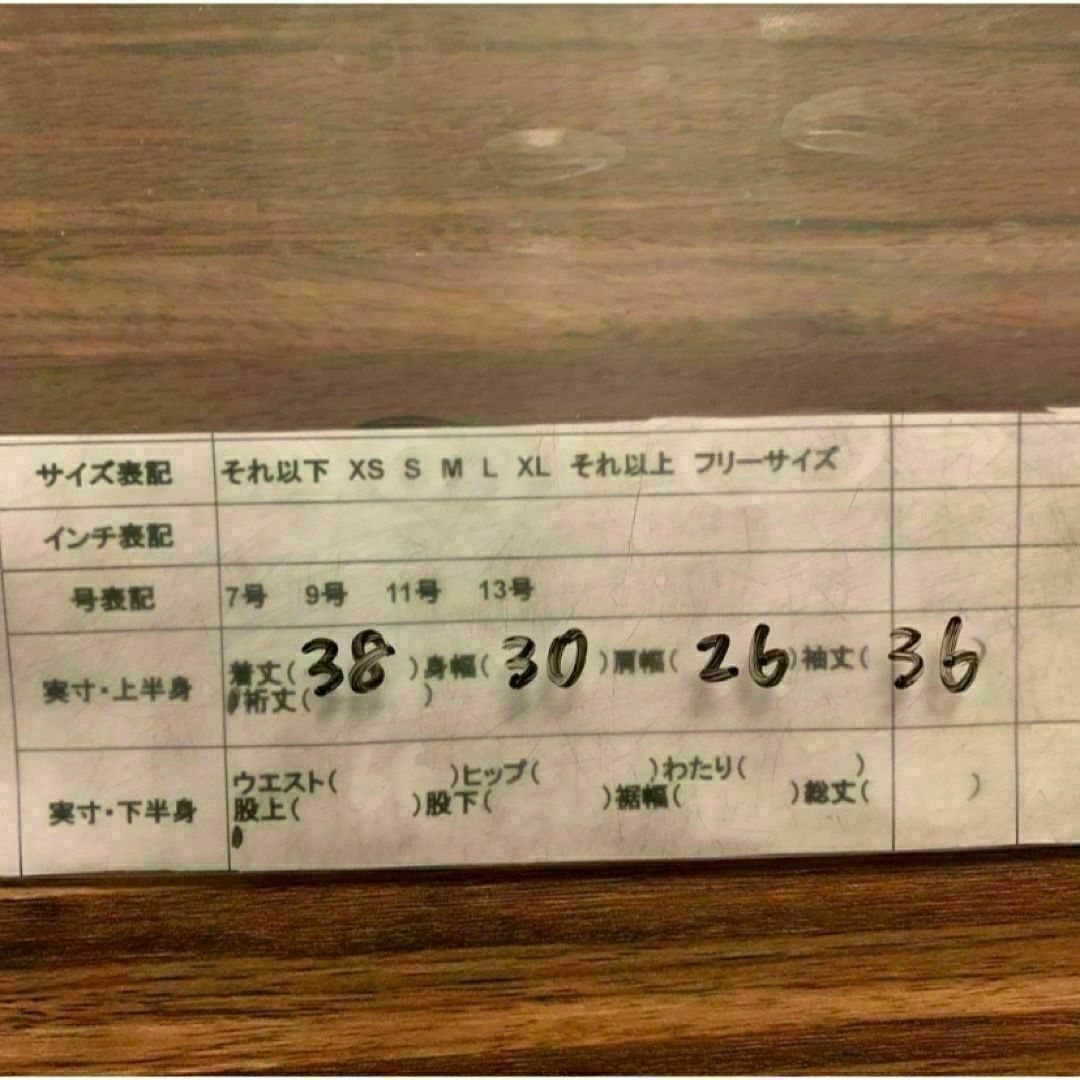 サイズ表記 それ以下 XS S M L XL それ以上 フリーサイズ
インチ表記
号表記 7号 9号 11号 13号
実寸・上半身 着丈(38)身幅(30)肩幅(26)袖丈(36)
裄丈( )
実寸・下半身 ウエスト( )ヒップ( )わたり( )
股上( )股下( )裾幅( )総丈( )